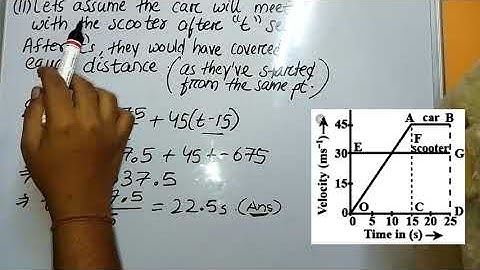 (11) Lets assume the care will meet
with the scooter after "t" se
After s, they would have covered
equal distance (as they've started
from the same pt.)
75 + 45(t-15)
7.5 + 45t - 675
⇒ 37.5
⇒ 7.5 = 22.5s (Ans)
Velocity (ms⁻¹) →
45
30
15
0
A car B
E
F
scooter
G
O
C
D
5 10 15 20 25
Time in (s) →